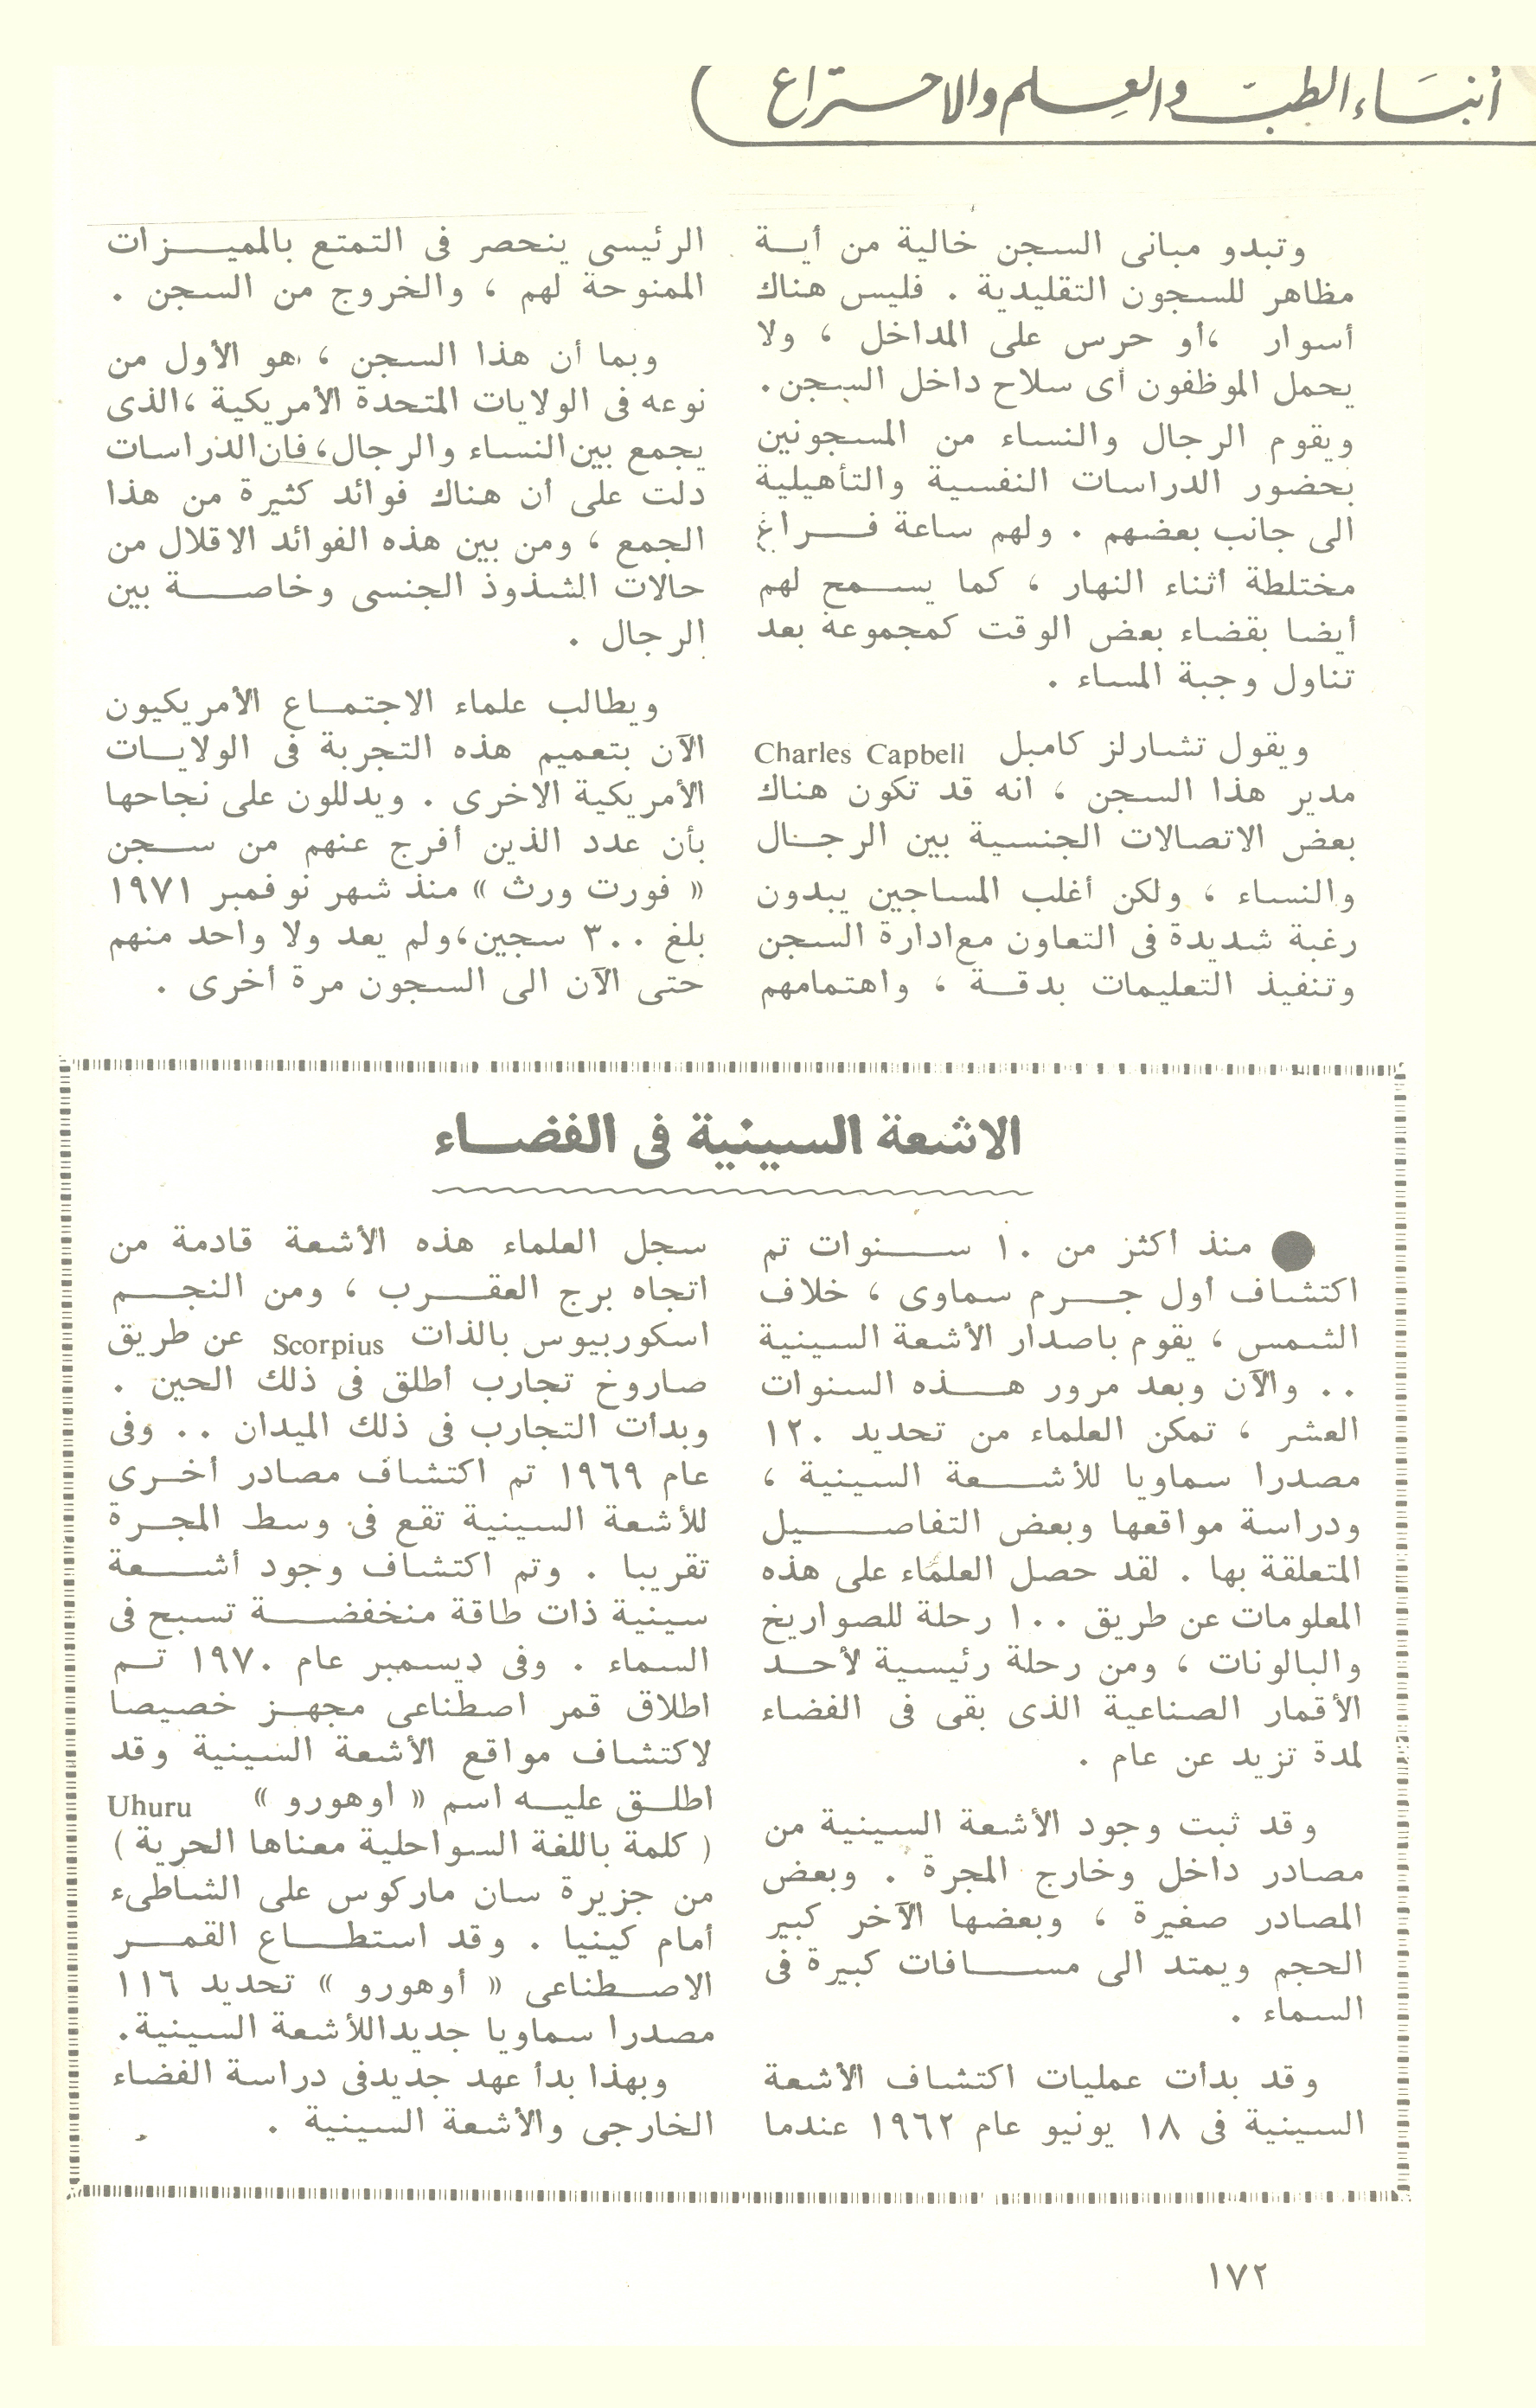 أنباء الطب والعلم والاختراع
وتبدو مبانى السجن خالية من أية
مظاهر للسجون التقليدية . فليس هناك
أسوار ،أو حرس على المداخل ، ولا
يحمل الموظفون أى سلاح داخل السجن.
ويقوم الرجال والنساء من المسجونين
بحضور الدراسات النفسية والتأهيلية
الى جانب بعضهم . ولهم ساعة فراغ
مختلطة أثناء النهار ، كما يسمح لهم
أيضا بقضاء بعض الوقت كمجموعة بعد
تناول وجبة المساء .
ويقول تشارلز كامبل Charles Capbell
مدير هذا السجن ، انه قد تكون هناك
بعض الاتصالات الجنسية بين الرجال
والنساء ، ولكن أغلب المساجين يبدون
رغبة شديدة فى التعاون مع ادارة السجن
وتنفيذ التعليمات بدقة ، واهتمامهم
الرئيسى ينحصر فى التمتع بالمميزات
الممنوحة لهم ، والخروج من السجن .
وبما أن هذا السجن ، هو الأول من
نوعه فى الولايات المتحدة الأمريكية ،الذى
يجمع بين النساء والرجال، فان الدراسات
دلت على أن هناك فوائد كثيرة من هذا
الجمع ، ومن بين هذه الفوائد الاقلال من
حالات الشذوذ الجنسى وخاصة بين
الرجال .
ويطالب علماء الاجتماع الأمريكيون
الآن بتعميم هذه التجربة فى الولايات
الأمريكية الاخرى . ويدللون على نجاحها
بأن عدد الذين أفرج عنهم من سجن
« فورت ورث » منذ شهر نوفمبر ١٩٧١
بلغ ٣٠٠ سجين،ولم يعد ولا واحد منهم
حتى الآن الى السجون مرة أخرى .
الاشعة السينية فى الفضاء
● منذ اكثر من ١٠ سنوات تم
اكتشاف أول جرم سماوى ، خلاف
الشمس ، يقوم باصدار الأشعة السينية
.. والآن وبعد مرور هذه السنوات
العشر ، تمكن العلماء من تحديد ١٢٠
مصدرا سماويا للأشعة السينية ،
ودراسة مواقعها وبعض التفاصيل
المتعلقة بها . لقد حصل العلماء على هذه
المعلومات عن طريق ١٠٠ رحلة للصواريخ
والبالونات ، ومن رحلة رئيسية لأحد
الأقمار الصناعية الذى بقى فى الفضاء
لمدة تزيد عن عام .
وقد ثبت وجود الأشعة السينية من
مصادر داخل وخارج المجرة . وبعض
المصادر صغيرة ، وبعضها الآخر كبير
الحجم ويمتد الى مسافات كبيرة فى
السماء .
وقد بدأت عمليات اكتشاف الأشعة
السينية فى ١٨ يونيو عام ١٩٦٢ عندما
سجل العلماء هذه الأشعة قادمة من
اتجاه برج العقرب ، ومن النجم
اسكوربيوس بالذات Scorpius عن طريق
صاروخ تجارب أطلق فى ذلك الحين .
وبدأت التجارب فى ذلك الميدان .. وفى
عام ١٩٦٩ تم اكتشاف مصادر أخرى
للأشعة السينية تقع فى وسط المجرة
تقريبا . وتم اكتشاف وجود أشعة
سينية ذات طاقة منخفضة تسبح فى
السماء . وفى ديسمبر عام ١٩٧٠ تم
اطلاق قمر اصطناعى مجهز خصيصا
لاكتشاف مواقع الأشعة السينية وقد
اطلق عليه اسم « اوهورو » Uhuru
( كلمة باللغة السواحلية معناها الحرية )
من جزيرة سان ماركوس على الشاطىء
أمام كينيا . وقد استطاع القمر
الاصطناعى « أوهورو » تحديد ١١٦
مصدرا سماويا جديداللأشعة السينية.
وبهذا بدأ عهد جديدفى دراسة الفضاء
الخارجى والأشعة السينية .
١٧٢